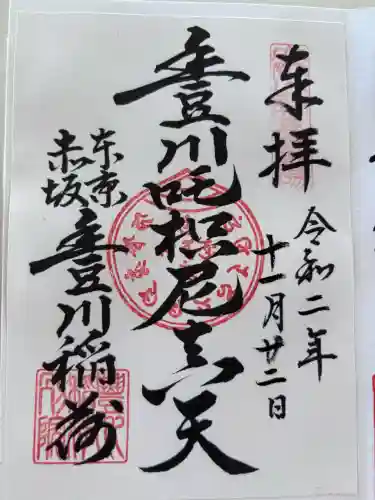 奉拝
令和二年
十一月廿二日
豊川吒枳尼真天
東京
赤坂
豊川稲荷